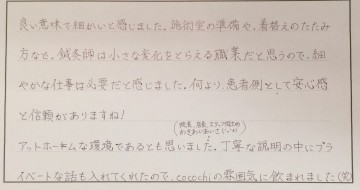 良い意味で細かいと感じました。施術室の準備や、着替えのたたみ
方など。鍼灸師は小さな変化をとらえる職業だと思うので、細
やかな仕事は必要だと感じました。何より、患者側として安心感
と信頼がありますね!
(院長、店長、スタッフ含め
わきあいあいさじゃい)
アットホームな環境であるとも思いました。丁寧な説明の中にプラ
イベートな話も入れてくれたので、cocochiの雰囲気に飲まれました(笑)